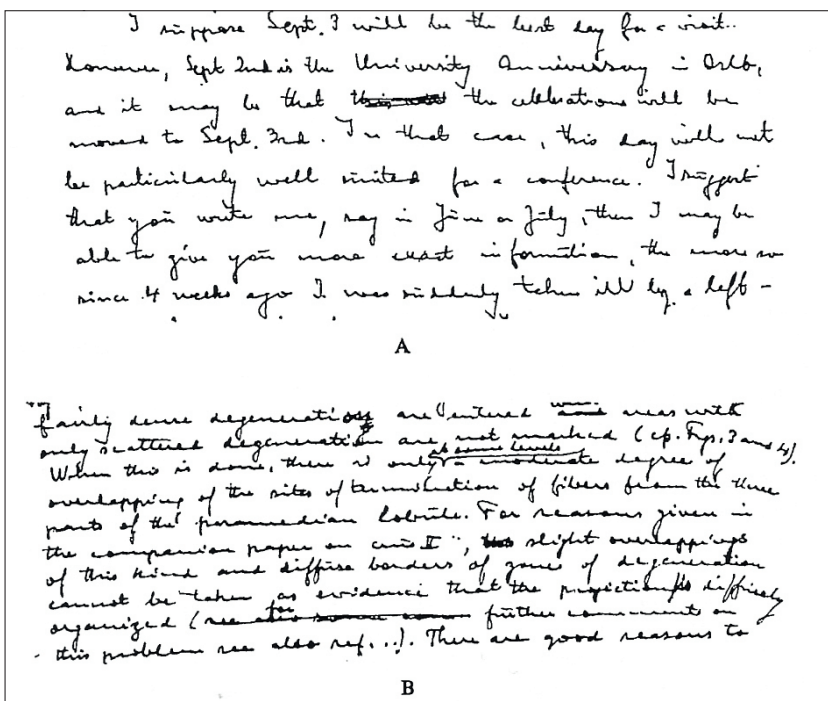 I suppose Sept. 3 will be the best day for a visit.
However, Sept 2nd is the University Anniversary in Oslo,
and it may be that the celebrations will be
moved to Sept. 3rd. In that case, this day will not
be particularly well suited for a conference. I suggest
that you write me, say in June or July, then I may be
able to give you more exact information, the more so
since 4 weeks ago I was suddenly taken ill by a left-
A
fairly dense degeneration are entered areas with
only scattered degeneration are not marked (cp. Figs. 3 and 4).
at some levels
When this is done, there is only a moderate degree of
overlapping of the sites of termination of fibers from the three
parts of the paramedian lobule. For reasons given in
the companion paper on crus II, slight overlappings
of this kind and diffuse borders of zones of degeneration
cannot be taken as evidence that the projection is diffusely
for
organized (see also further comments on
this problem see also ref...). There are good reasons to
B